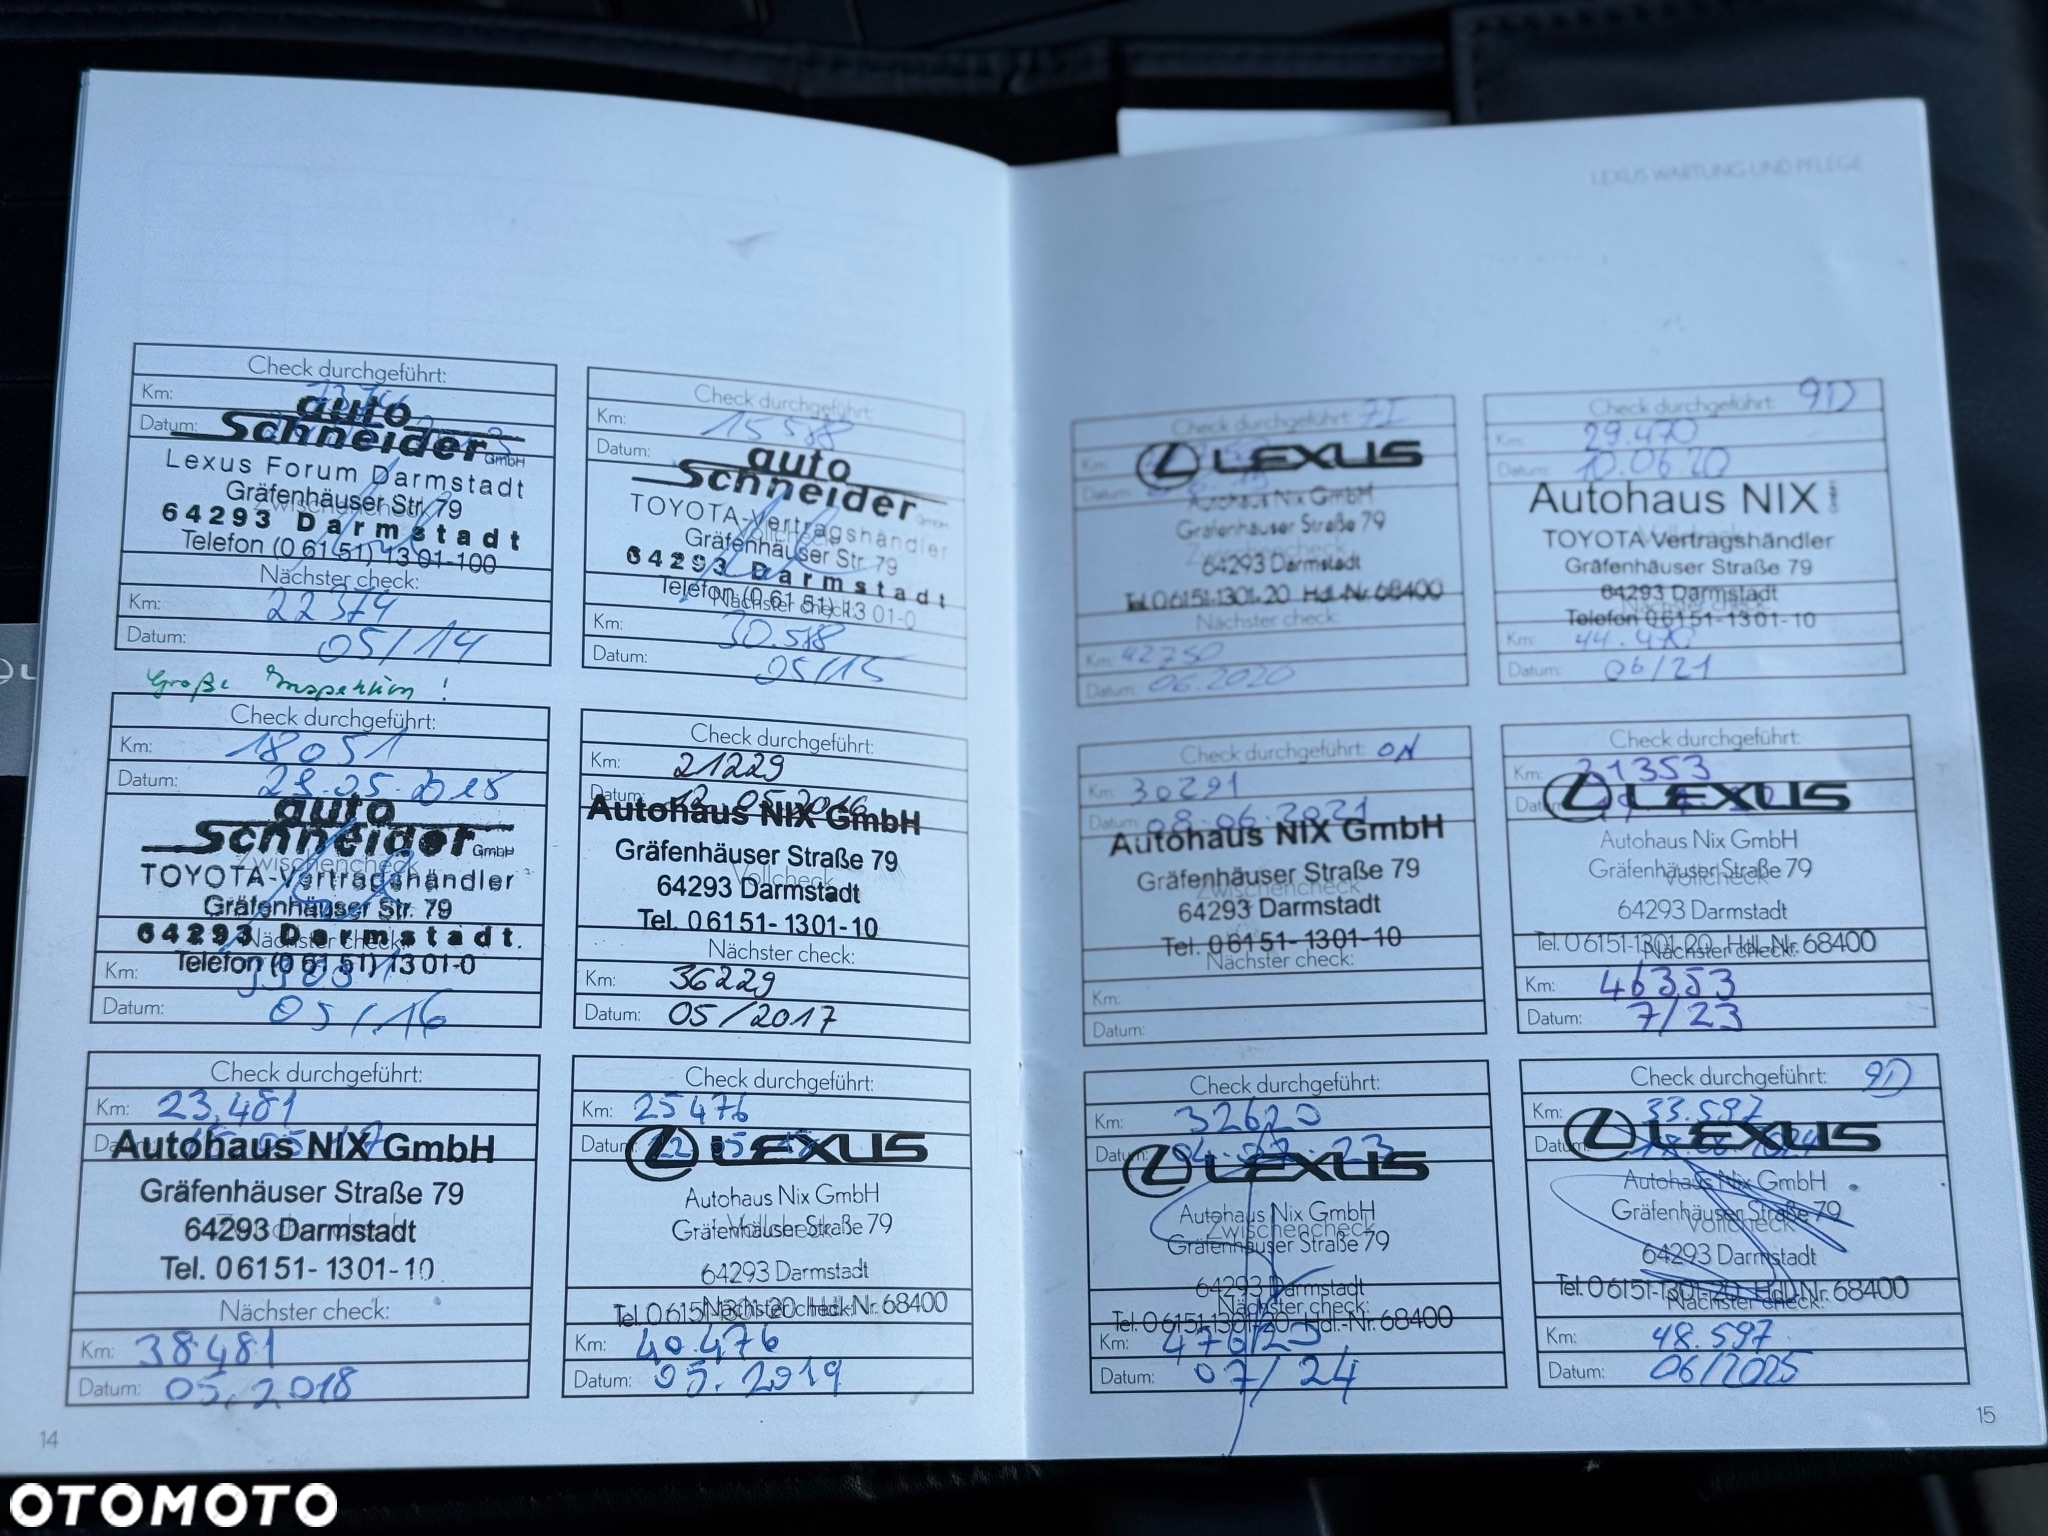 LEXUS WARTUNG UND PFLEGE
Check durchgeführt:
Km:
Datum:
auto
Schneider GmbH
Lexus Forum Darmstadt
Gräfenhäuser Str. 79
Zwischencheck
64293 Darmstadt
Telefon (0 61 51) 13 01-100
Nächster check:
Km: 22374
Datum: 05/14
Check durchgeführt:
Km: 15588
Datum:
auto
Schneider GmbH
TOYOTA-Vertragshändler
Vollcheck
Gräfenhäuser Str. 79
64293 Darmstadt
Telefon (0 61 51) 13 01-0
Nächster check:
Km: 30.588
Datum: 05/15
Große Inspektion!
Check durchgeführt:
Km: 18051
Datum: 29.05.2015
auto
Schneider GmbH
Zwischencheck
TOYOTA-Vertragshändler
Gräfenhäuser Str. 79
64293 Darmstadt
Nächster check:
Telefon (0 61 51) 13 01-0
Km:
Datum: 05/16
Check durchgeführt:
Km: 21229
Datum: 05.2016
Autohaus NIX GmbH
Gräfenhäuser Straße 79
Vollcheck
64293 Darmstadt
Tel. 0 61 51-13 01-10
Nächster check:
Km: 36229
Datum: 05/2017
Check durchgeführt:
Km: 23.481
Datum: 05 17
Autohaus NIX GmbH
Gräfenhäuser Straße 79
64293 Darmstadt
Tel. 0 61 51-13 01-10
Nächster check:
Km: 38481
Datum: 05.2018
Check durchgeführt:
Km: 25476
Datum: 22 05 18
LEXUS
Autohaus Nix GmbH
Gräfenhäuser Straße 79
Vollcheck
64293 Darmstadt
Tel. 0 6151-1301-20 Hdl.-Nr. 68400
Nächster check:
Km: 40.476
Datum: 05.2019
14
Check durchgeführt:
Km:
Datum:
LEXUS
Autohaus Nix GmbH
Gräfenhäuser Straße 79
Zwischencheck
64293 Darmstadt
Tel. 0 6151-1301-20 Hdl.-Nr. 68400
Nächster check:
Km: 42750
Datum: 06.2020
Check durchgeführt: 9D
Km: 29.470
Datum: 10.06.20
Autohaus NIX GmbH
Vollcheck
TOYOTA Vertragshändler
Gräfenhäuser Straße 79
64293 Darmstadt
Nächster check:
Telefon 0 61 51-13 01-10
Km: 44.470
Datum: 06/21
Check durchgeführt: ON
Km: 30291
Datum: 08.06.2021
Autohaus NIX GmbH
Gräfenhäuser Straße 79
Zwischencheck
64293 Darmstadt
Tel. 0 61 51-13 01-10
Nächster check:
Km:
Datum:
Check durchgeführt:
Km: 31353
Datum:
LEXUS
Autohaus Nix GmbH
Gräfenhäuser Straße 79
Vollcheck
64293 Darmstadt
Tel. 0 6151-1301-20 Hdl.-Nr. 68400
Nächster check:
Km: 46353
Datum: 7/23
Check durchgeführt:
Km: 32620
Datum: 04.07.23
LEXUS
Autohaus Nix GmbH
Zwischencheck
Gräfenhäuser Straße 79
64293 Darmstadt
Nächster check:
Tel. 0 6151-1301-20 Hdl.-Nr. 68400
Km: 47620
Datum: 07/24
Check durchgeführt: 9D
Km: 33.597
Datum:
LEXUS
Autohaus Nix GmbH
Gräfenhäuser Straße 79
Vollcheck
64293 Darmstadt
Tel. 0 6151-1301-20 Hdl.-Nr. 68400
Nächster check:
Km: 48.597
Datum: 06/2025
15
OTOMOTO